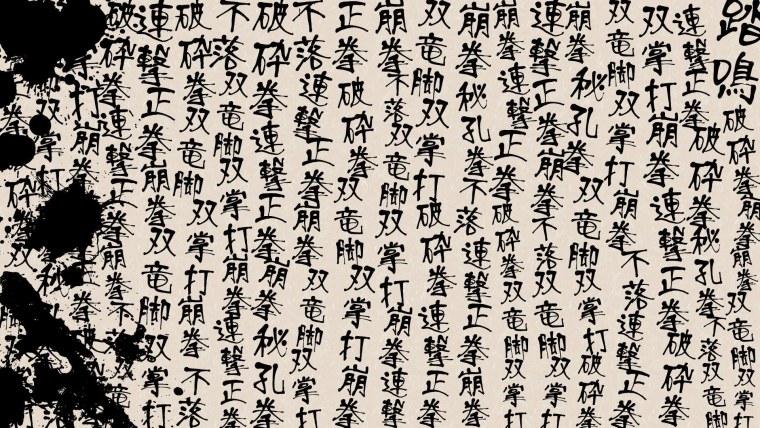 踏鳴破砕拳崩拳崩拳双竜脚双掌打
連撃正拳破砕拳秘孔拳不落双竜脚
双掌打崩拳連撃正拳破砕拳
双竜脚双掌打崩拳不落連撃正拳
崩拳秘孔拳双竜脚双掌打破砕拳
連撃正拳崩拳不落双竜脚双掌打
崩拳連撃正拳破砕拳双竜脚双掌打
崩拳秘孔拳不落連撃正拳崩拳
双竜脚双掌打破砕拳連撃正拳
崩拳不落双竜脚双掌打崩拳連撃
正拳破砕拳双竜脚双掌打崩拳
不落連撃正拳崩拳双竜脚双掌打
破砕拳連撃正拳崩拳秘孔拳
不落双竜脚双掌打崩拳連撃正拳
破砕拳双竜脚双掌打崩拳不落
連撃正拳崩拳双竜脚双掌打
破砕拳連撃正拳崩拳不落双竜
打崩拳